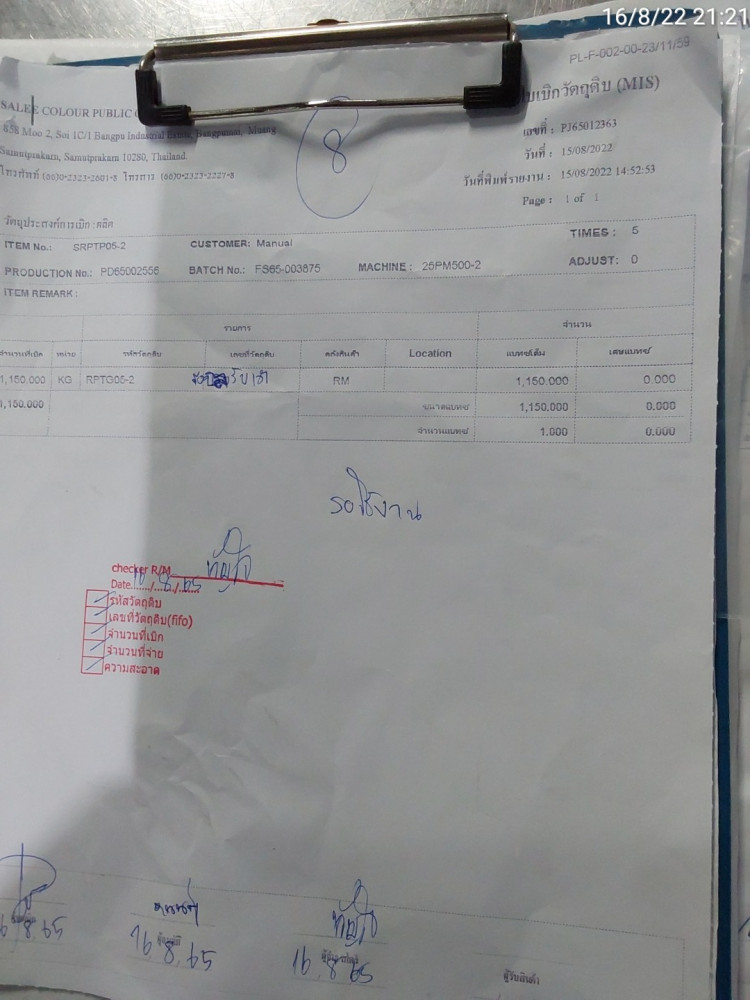 16/8/22 21:21
PL-F-002-00-23/11/59
ใบเบิกวัตถุดิบ (MIS)
SALEE COLOUR PUBLIC
858 Moo 2, Soi 1C/1 Bangpu Industrial Estate, Bangpumai, Muang
Samutprakarn, Samutprakarn 10280, Thailand.
โทรศัพท์ (66)0-2323-2601-8 โทรสาร (66)0-2323-2227-8
8
เลขที่ : PJ65012363
วันที่ : 15/08/2022
วันที่พิมพ์รายงาน : 15/08/2022 14:52:53
Page : 1 of 1
วัตถุประสงค์การเบิก : ผลิต
ITEM No.: SRPTP05-2 CUSTOMER: Manual TIMES : 5
PRODUCTION No.: PD65002556 BATCH No.: FS65-003875 MACHINE : 25PM500-2 ADJUST: 0
ITEM REMARK :
รายการ จำนวน
จำนวนที่เบิก หน่วย รหัสวัตถุดิบ เลขที่วัตถุดิบ คลังสินค้า Location แบทช์เต็ม เศษแบทช์
1,150.000 KG RPTG05-2 รับเข้า RM 1,150.000 0.000
1,150.000 ขนาดแบทช์ 1,150.000 0.000
จำนวนแบทช์ 1.000 0.000
รอใช้งาน
checker R/M
Date 16/8/65
รหัสวัตถุดิบ
เลขที่วัตถุดิบ(fifo)
จำนวนที่เบิก
จำนวนที่จ่าย
ความสะอาด
16.8.65 16.8.65
ผู้รับสินค้า